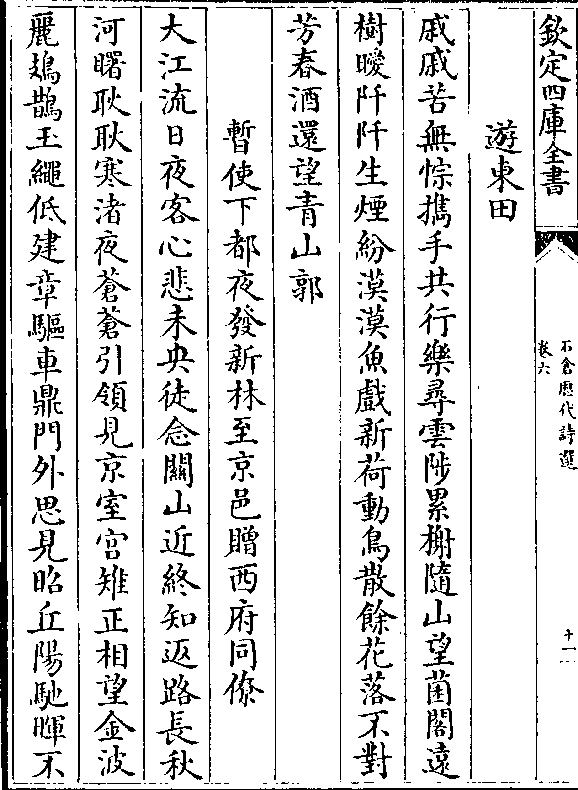 欽定四庫全書
石倉歴代詩選
卷六
十一
遊東田
戚戚苦無悰攜手共行樂尋雲陟累榭隨山望菌閣遠
樹曖阡阡生煙紛漠漠魚戲新荷動鳥散餘花落不對
芳春酒還望青山郭
暫使下都夜發新林至京邑贈西府同僚
大江流日夜客心悲未央徒念關山近終知返路長秋
河曙耿耿寒渚夜蒼蒼引領見京室宫雉正相望金波
麗鳷鵲玉繩低建章驅車鼎門外思見昭丘陽馳暉不